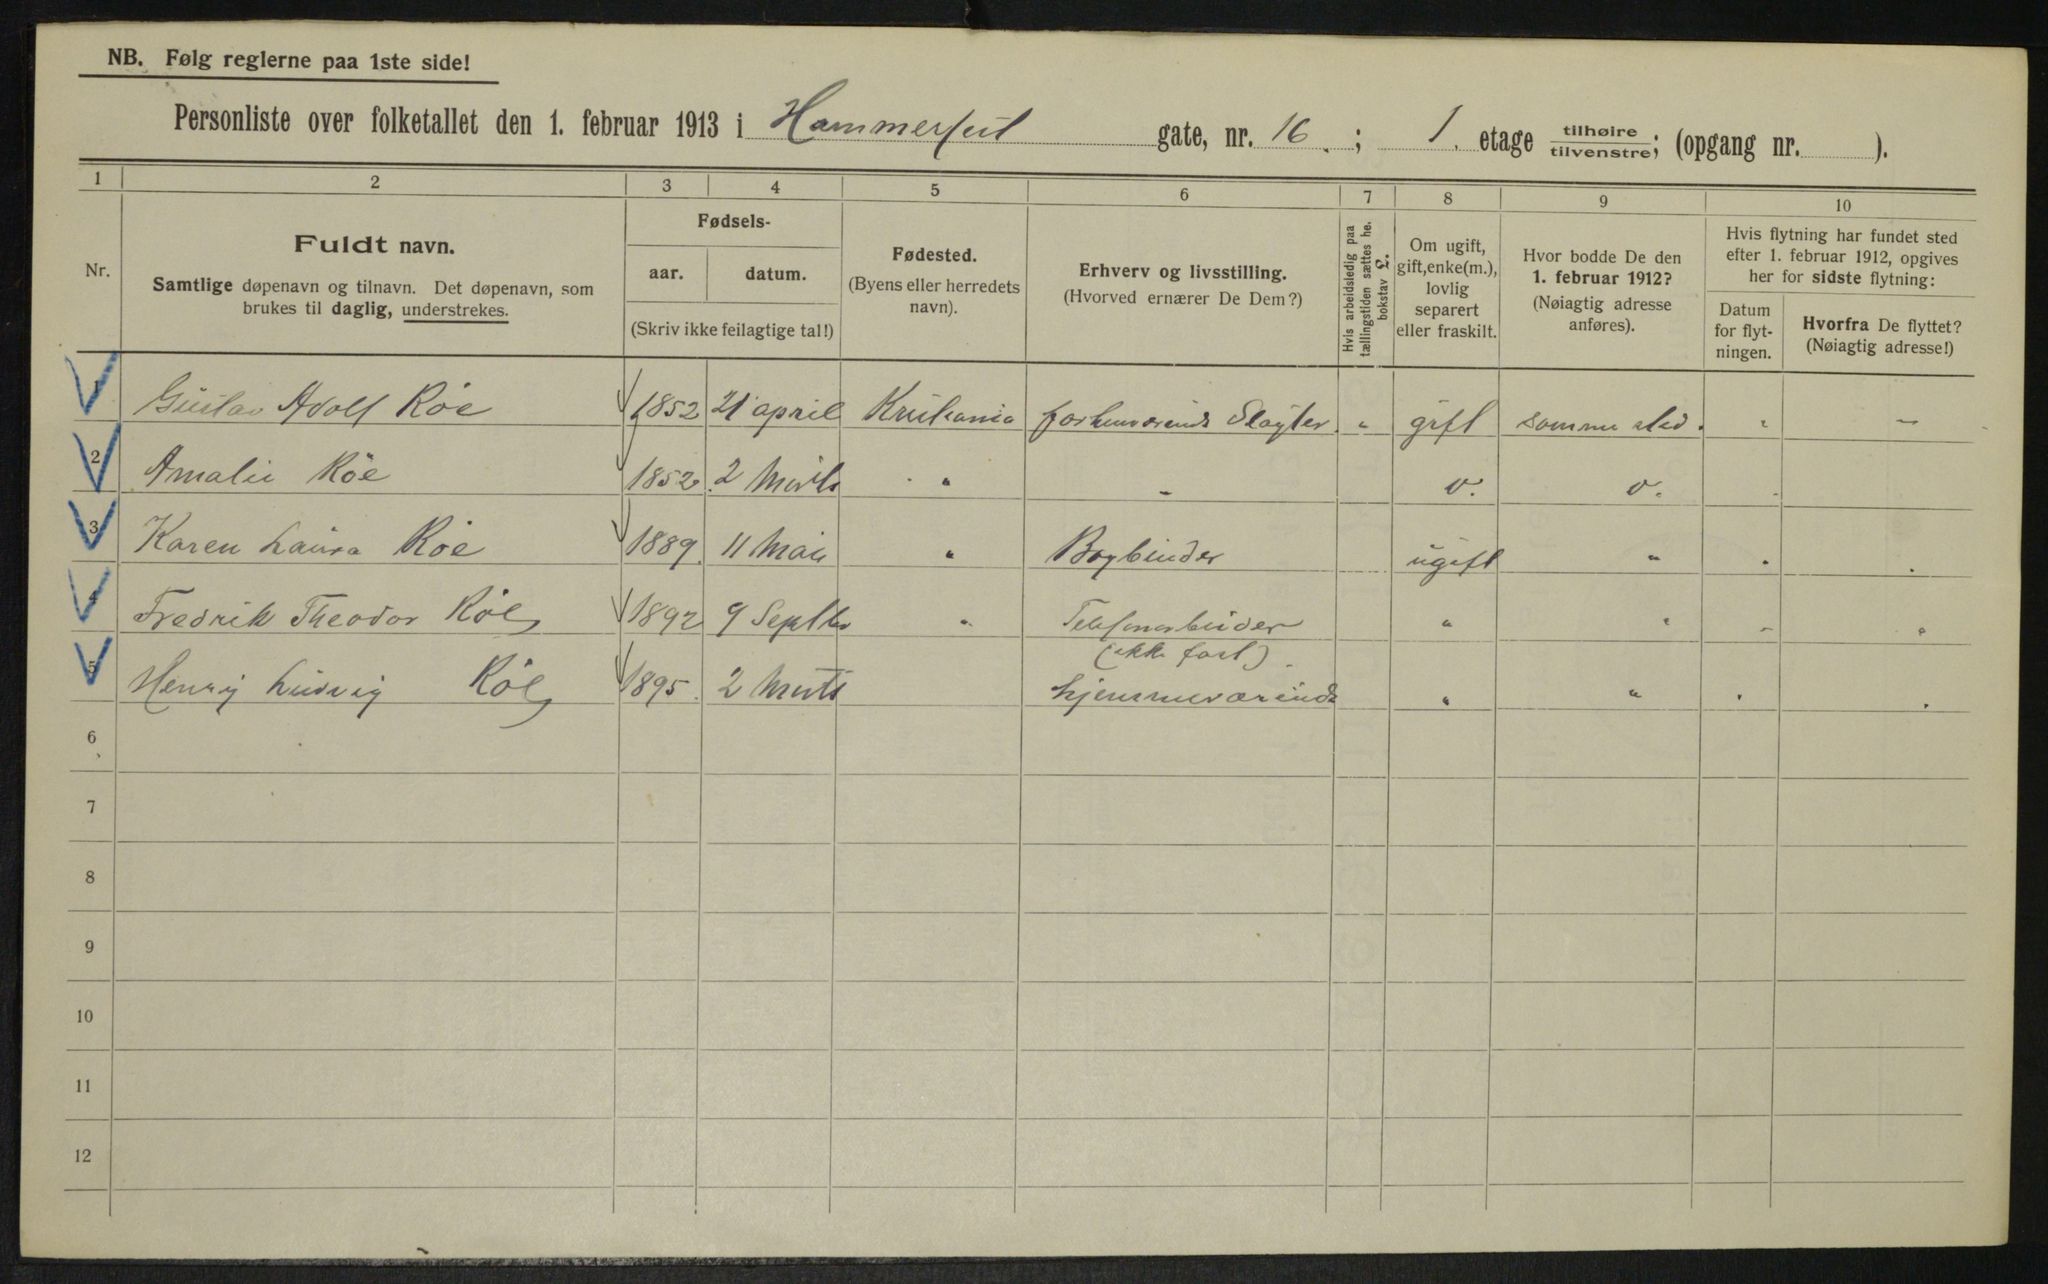 NB. Følg reglerne paa 1ste side!
Personliste over folketallet den 1. februar 1913 i Hammerfest gate, nr. 16.; 1. etage tilhøire tilvenstre; (opgang nr. ).
1 2 3 4 5 6 7 8 9 10
Nr.
Fuldt navn.
Samtlige døpenavn og tilnavn. Det døpenavn, som
brukes til daglig, understrekes.
Fødsels-
aar. datum.
(Skriv ikke feilagtige tal!)
Fødested.
(Byens eller herredets
navn).
Erhverv og livsstilling.
(Hvorved ernærer De Dem?)
Hvis arbeidsledig paa
tællingstiden sættes he.
bokstav L.
Om ugift,
gift, enke(m.),
lovlig
separert
eller fraskilt.
Hvor bodde De den
1. februar 1912?
(Nøiagtig adresse
anføres).
Hvis flytning har fundet sted
efter 1. februar 1912, opgives
her for sidste flytning:
Datum
for flyt-
ningen.
Hvorfra De flyttet?
(Nøiagtig adresse!)
1 Gustav Adolf Röe 1852 21 april Kristiania forhenværende Slagter " gift samme sted. " –
2 Amalie Röe 1852 2 " – o. o.
3 Karen Laura Röe 1889 11 Mai " Bogbinder ugift "
4 Fredrik Theodor Röe 1892 9 Septbr " Telefonarbeider " "
(ikke fast)
5 Henry Ludvig Röe 1895 2 Marts hjemmeværende " "
6
7
8
9
10
11
12